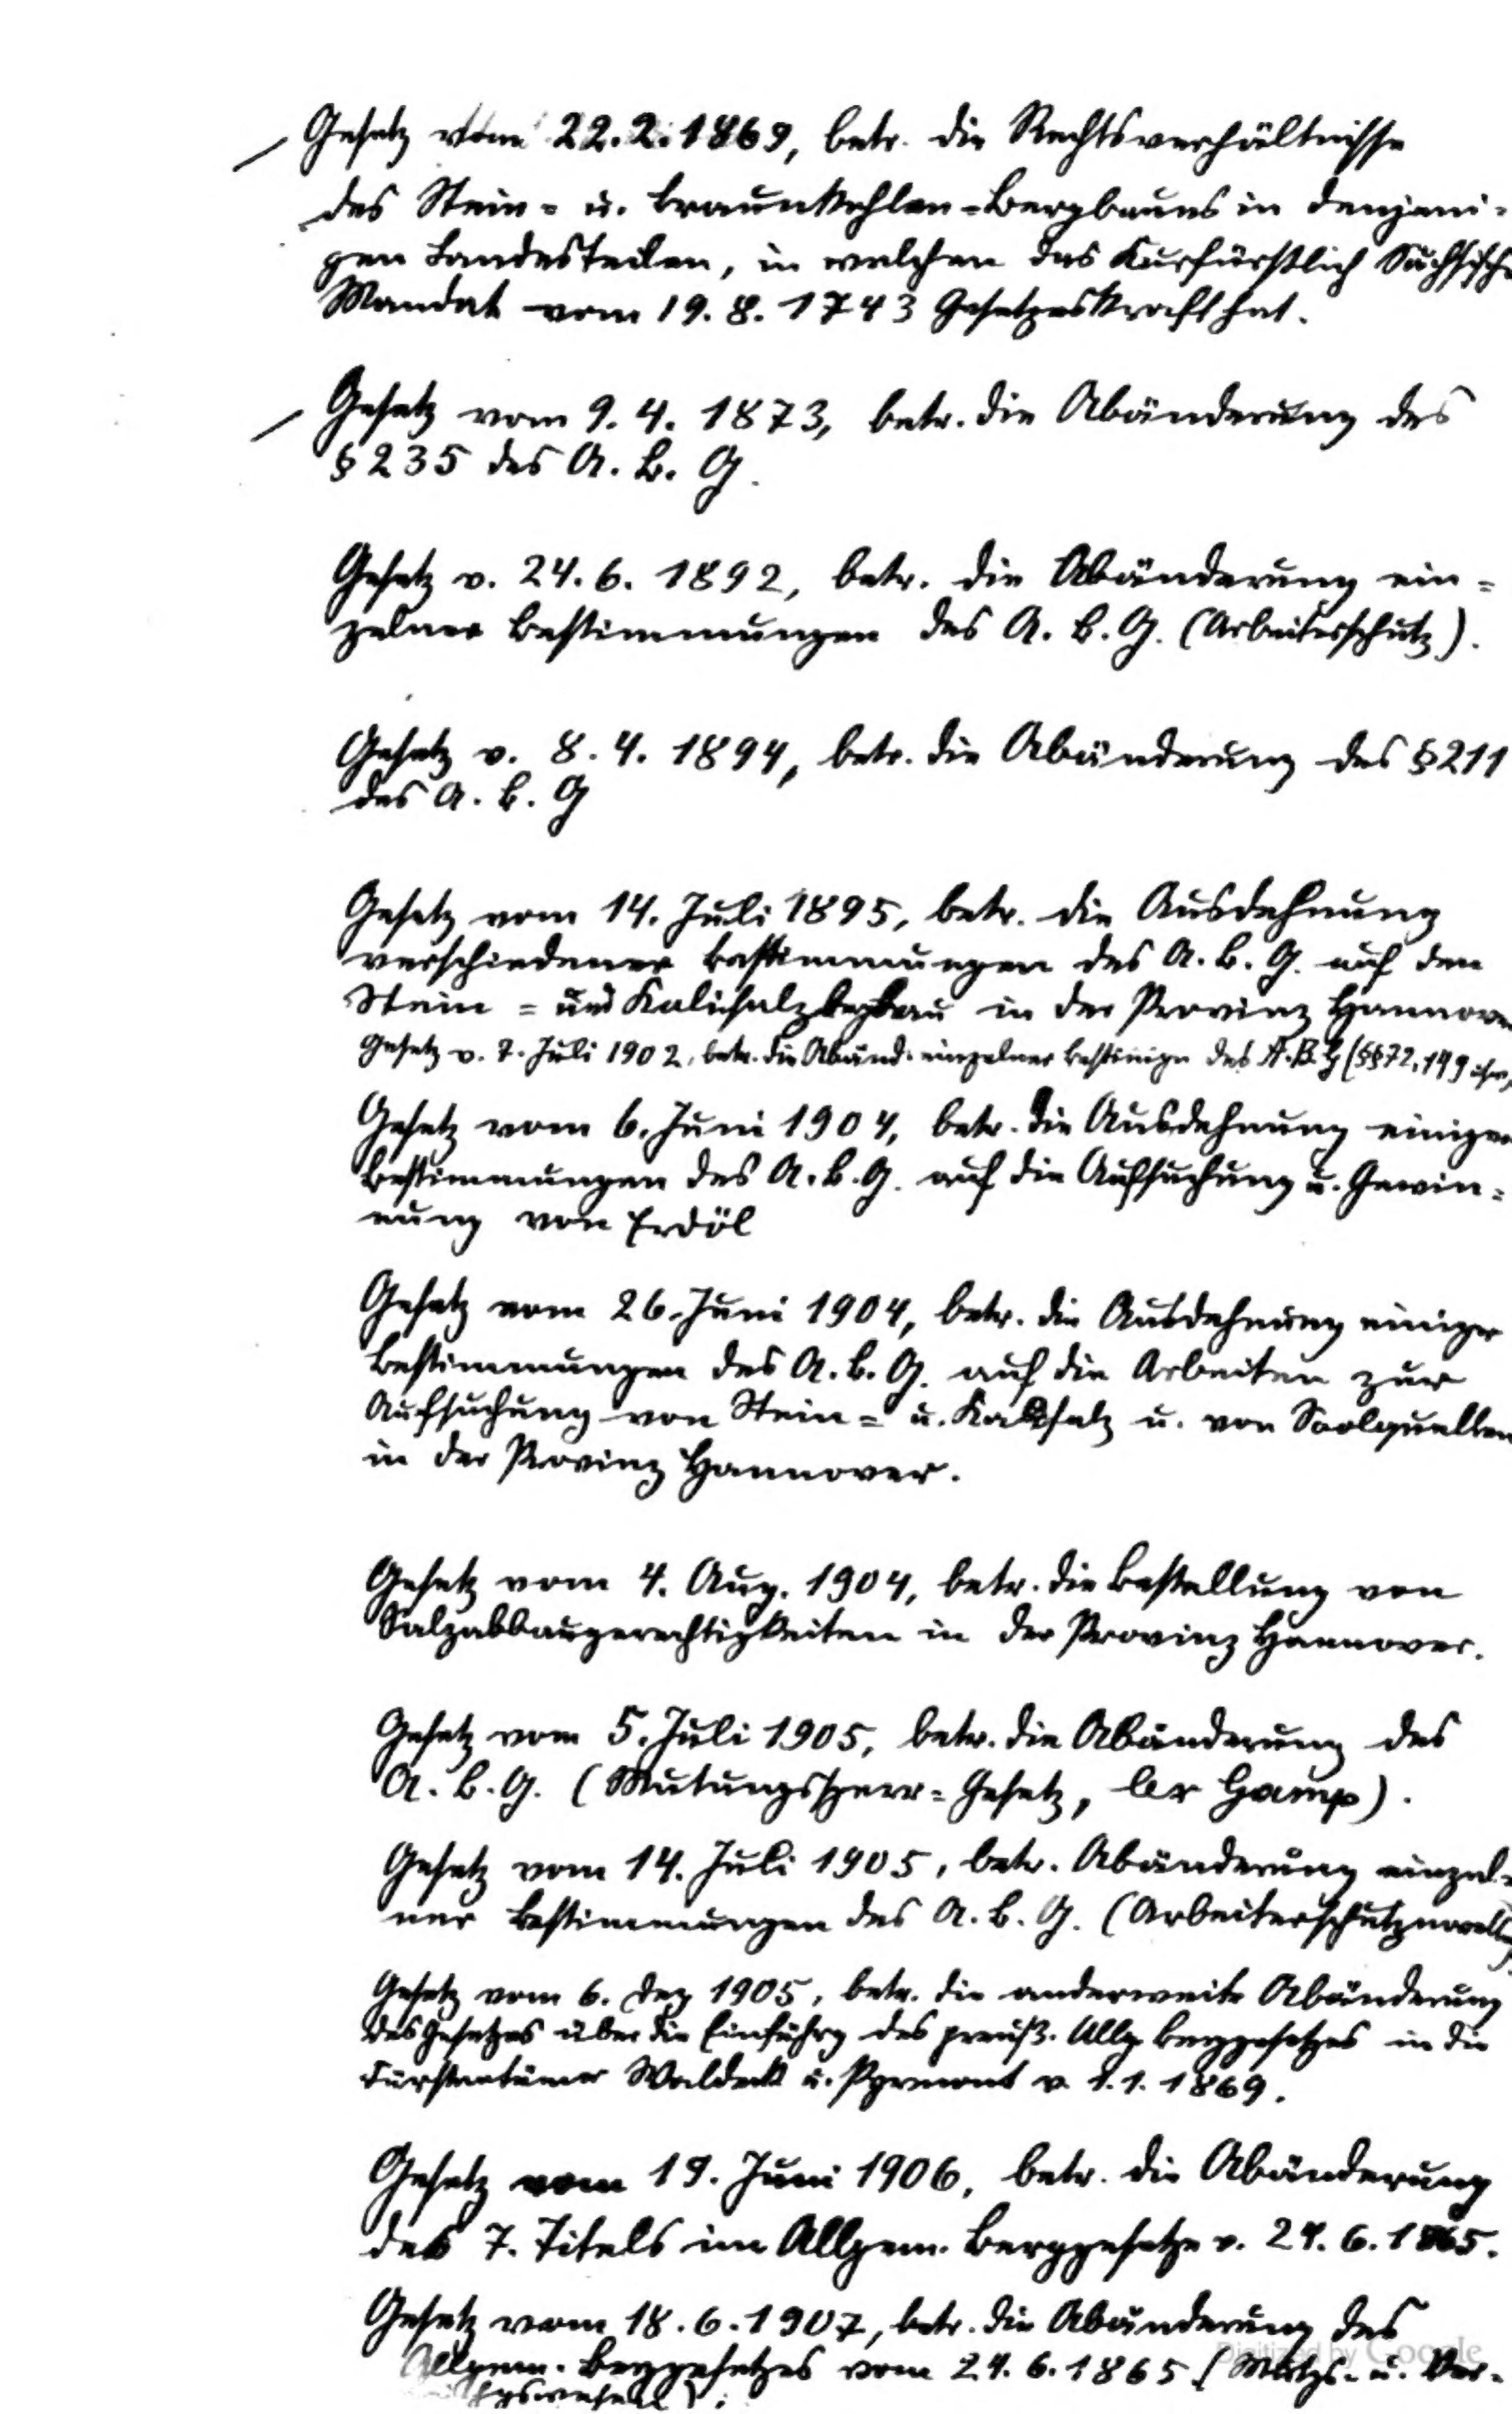 Gesetz vom 22.2.1869, betr. die Rechtsverhältnisse
des Stein- u. Braunkohlen-Bergbaues in denjeni-
gen Landesteilen, in welchen das Kurfürstlich Sächsische
Mandat vom 19.8.1743 Gesetzeskraft hat.
Gesetz vom 9.4.1873, betr. die Abänderung des
§ 235 des A. B. G.
Gesetz v. 24.6.1892, betr. die Abänderung ein-
zelner Bestimmungen des A. B. G. (Arbeiterschutz).
Gesetz v. 8.4.1894, betr. die Abänderung des § 211
des A. B. G
Gesetz vom 14. Juli 1895, betr. die Ausdehnung
verschiedener Bestimmungen des A. B. G. auf den
Stein- und Kalisalzbergbau in der Provinz Hannover
Gesetz v. 7. Juli 1902, betr. die Abänd. einzelner Bestimgn des A.B.G (§§ 72, 149 usw.
Gesetz vom 6. Juni 1904, betr. die Ausdehnung einiger
Bestimmungen des A. B. G. auf die Aufsuchung u. Gewin-
nung von Erdöl
Gesetz vom 26. Juni 1904, betr. die Ausdehnung einiger
Bestimmungen des A. B. G. auf die Arbeiten zur
Aufsuchung von Stein- u. Kalisalz u. von Soolquellen
in der Provinz Hannover.
Gesetz vom 4. Aug. 1904, betr. die Bestellung von
Salzabbaugerechtigkeiten in der Provinz Hannover.
Gesetz vom 5. Juli 1905, betr. die Abänderung des
A. B. G. (Mutungssperr-Gesetz, lex Gamp).
Gesetz vom 14. Juli 1905, betr. Abänderung einzel-
ner Bestimmungen des A. B. G. (Arbeiterschutznovelle)
Gesetz vom 6. Dez 1905, betr. die anderweite Abänderung
des Gesetzes über die Einführg des preuß. Allg. Berggesetzes in die
Fürstentümer Waldeck u. Pyrmont v. 1.1.1869.
Gesetz vom 19. Juni 1906, betr. die Abänderung
des 7. Titels im Allgem. Berggesetze v. 24.6.1865.
Gesetz vom 18.6.1907, betr. die Abänderung des
Allgem. Berggesetzes vom 24.6.1865 (Mutgs- u. Ver-
Digitized by Google